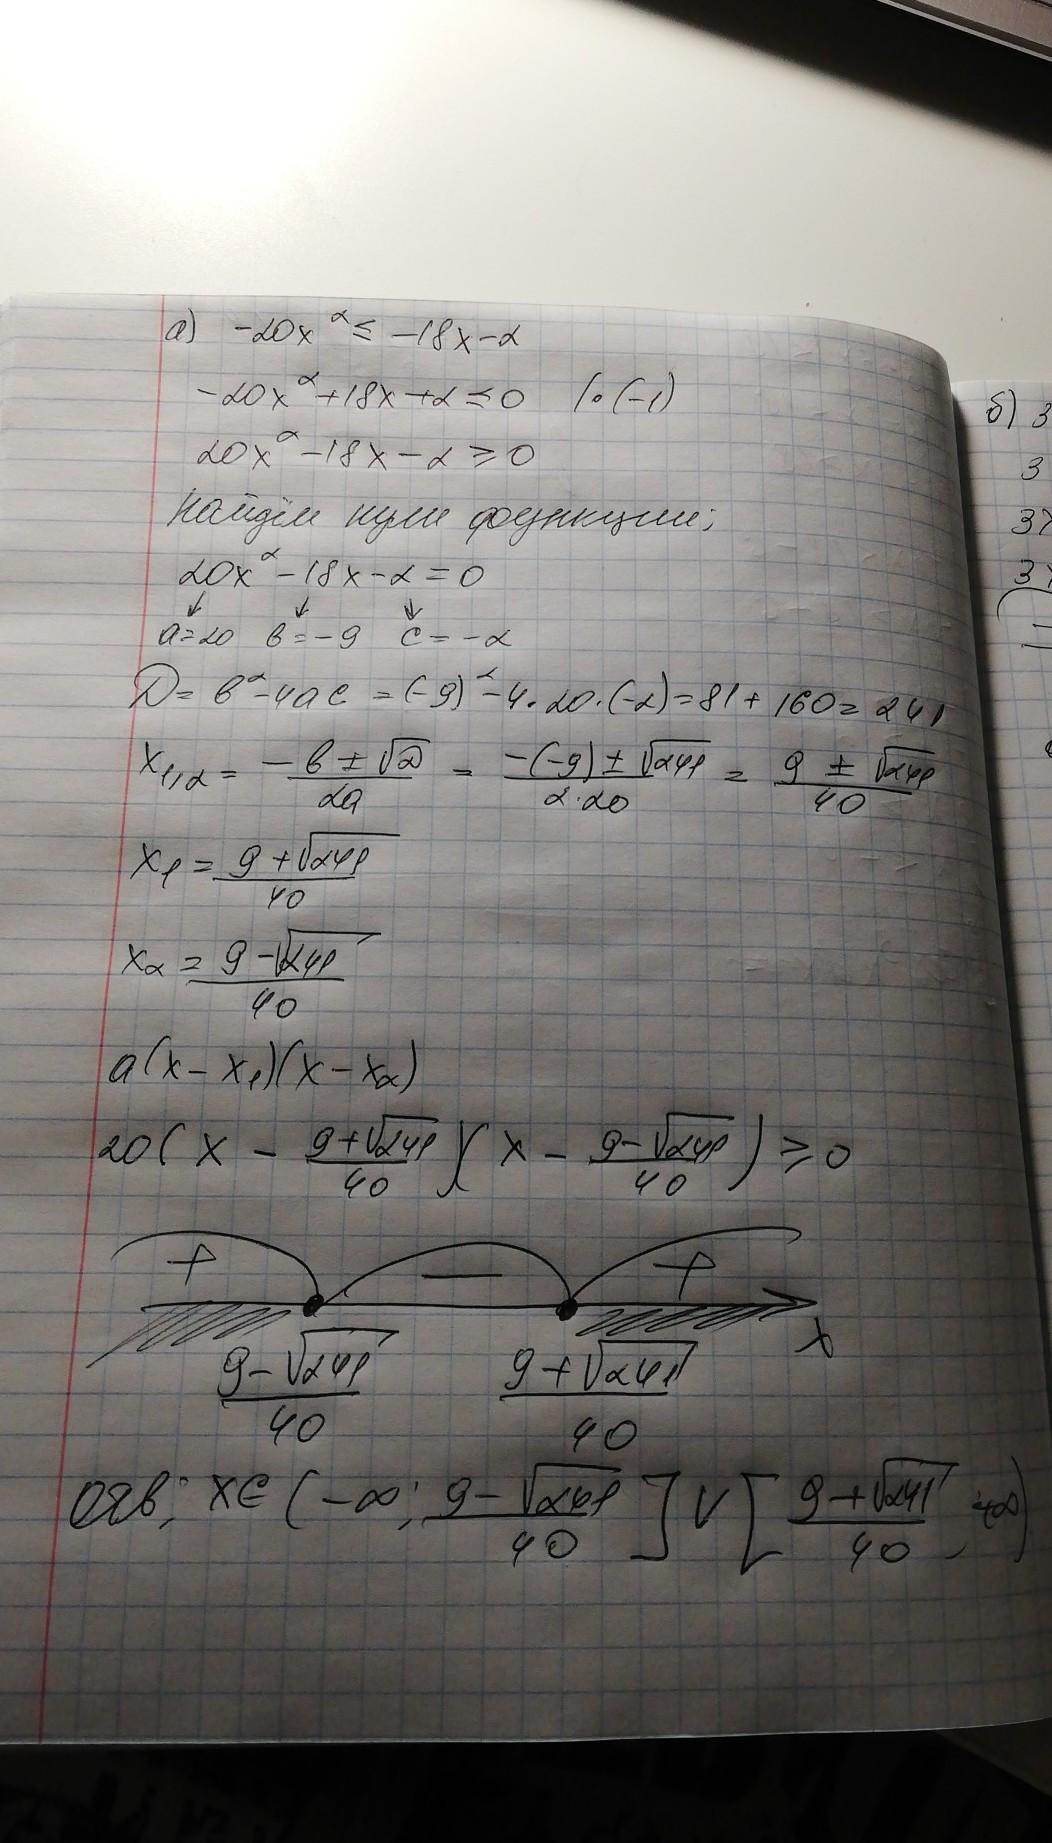 а) -20x² ≤ -18x-2
-20x²+18x+2≤0 |·(-1)
20x²-18x-2≥0
Найдём нули функции;
20x²-18x-2=0
a=20 в=-9 c=-2
D= в²-4ac =(-9)²-4·20·(-2)=81+160=241
x₁,₂ = (-в±√D)/2a = (-(-9)±√241)/(2·20) = (9±√241)/40
x₁ = (9+√241)/40
x₂ = (9-√241)/40
a(x-x₁)(x-x₂)
20(x - (9+√241)/40)(x - (9-√241)/40) ≥0
+ — +
x
(9-√241)/40 (9+√241)/40
Отв; x∈(-∞; (9-√241)/40] ∨ [(9+√241)/40; +∞)
б) 3
3
3x
3x